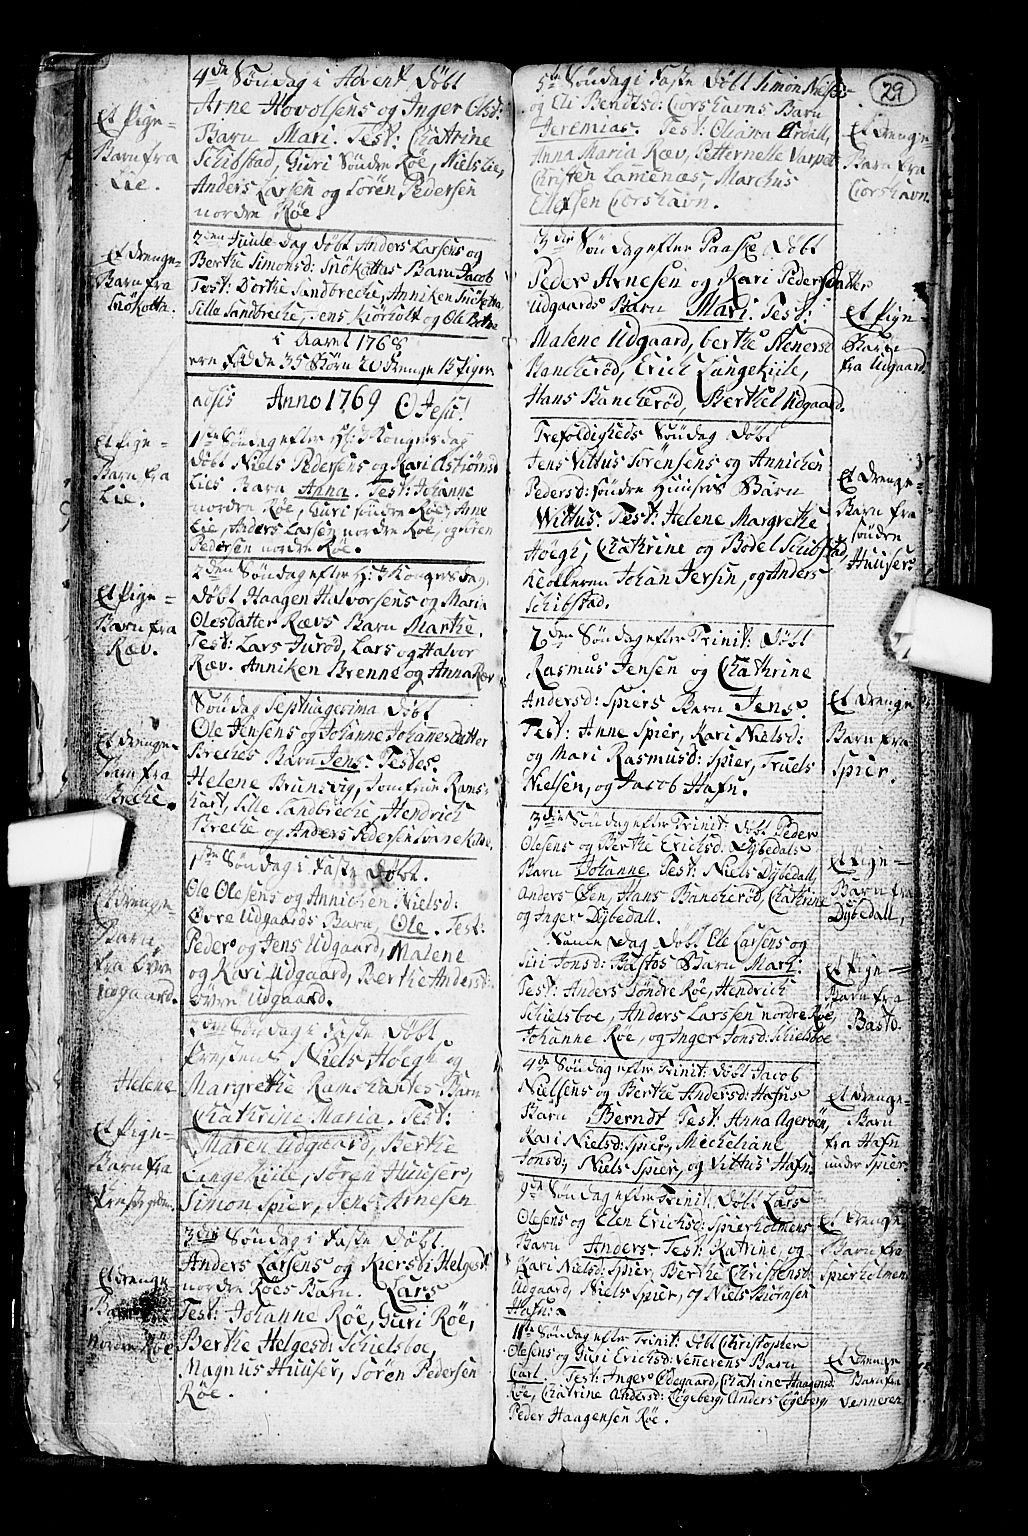 4de Søndag i Advent Døbt
Arne Hovolsens og Inger Olsd:
Barn Mari. Test: Chatrine
Schibstad, Guri Søndre Röe, Niels Lie,
Anders Larsen og Sören Pedersen
nordre Röe.
Et Pige-
Barn fra
Lie.
2den Juule Dag Døbt Anders Larsens og
Berthe Simonsd: Snökottas Barn Jacob
Test: Dorthe Sandbrecke, Anniken Snökotta
Sille Sandbrecke, Jens Kiorholt og Ole
Et Drenge-
Barn fra
Snökotta.
i Aaret 1768
ere födde 35 Börn 20 drenge 15 Piger
Anno 1769 O Jesu!
1ste Søndag efter H: 3 Kongers dag
döbt Niels Pedersens og Kari Asbjørnsd
Lies Barn Anna. Test: Johanne
nordre Röe, Guri søndre Röe, Anne
Lie, Anders Larsen nordre Röe, og Sören
Pedersen nordre Röe.
Et Pige-
Barn fra
Lie.
2den Søndag efter H: 3 Kongers dag.
döbt Haagen Halvorsens og Maria
Olesdatter Rævs Barn Marthe.
Test: Lars Furöd, Lars og Halvor
Ræv. Anniken Brenne og Anna Ræv
Et Pige-
Barn fra
Ræv.
Søndag Septuagesima Döbt
Ole Jensens og Johanne Johannesdatter
Breches Barn Jens. Testes.
Helene Brunsvig, Jomfrue Rams-
hart, Sille Sandbreche, Hendrich
Breche og Anders Pedersen Svarekilde.
Et Drenge-
Barn fra
Breche.
1ste Søndag i Faste Döbt.
Ole Olesens og Annichen Nielsd:
Övre Udgaards Barn, Ole. Test:
Peder og Jens Udgaard, Malene
og Kari Udgaard, Berthe Andersd:
övre Udgaard.
Et Drenge-
Barn
fra Övre
Udgaard.
2den Søndag i Faste Döbt
Niels Høegh og
Helene
Margrethe Ramsharts Barn
Chathrine Maria. Test:
Maren Udgaard, Berthe
Langekiile, Sören Huuser,
Simon Spier, Jens Arnesen
Et Pige-
Barn fra
3die Søndag i Faste Döbt
Anders Larsens og Kiersti Helgesd
nordre Röes Barn. Lars
Test: Johanne Röe, Guri Röe,
Berthe Helgesd: Schielsboe,
Magnus Huuser, Sören Pedersen
Röe.
Et Drenge-
Barn
Nordre Röe
29
5te Søndag i Faste Døbt Simon Nielses
og Eli Bendtsd: Corshavns Barn
Jeremias. Test: Oliana Årdall,
Anna Maria Ræv, Petternelle Varpet
Christen Lamenæs, Marchus
Ellefsen Corshavn.
Et Drenge
Barn fra
Corshavn.
3die Søndag efter Paaske Døbt
Peder Arnesen og Kari Pedersdatter
Udgaards Barn Mari. Test:
Malene Udgaard, berthe Stenersd
Bancheröd, Erich Langekiile,
Hans Bancheröd, Berthel Udgaard.
Et Pige-
Barn
fra Udgaard.
Trefoldigheds Søndag Döbt
Jens Vittus Sørensens og Annichen
Pedersd: søndre Huusers Barn
Wittus. Test: Helene Margrethe
Höegh, Chathrine og Bodel Schibstad,
Johan Jersin, og Anders
Schibstad.
Et Drenge-
Barn fra
søndre
Huuser.
2den Søndag efter Trinit: Döbt
Rasmus Jensen og Chathrine
Andersd: Spiers Barn Jens.
Test: Anne Spier, Kari Nielsd:
og Mari Rasmusd: Spier, Truels
Nielsen, og Jacob Hafn.
Et Drenge
Barn fra
Spier.
3die Søndag efter Trinit: Döbt Peder
Olesens og Berthe Erichsd: Dybedals
Barn Johanne. Test: Niels Dybedall,
Anders Öen, Hans Bancheröd, Chathrine
og Inger Dybedall.
Et Pige-
Barn fra
Dybedall,
Samme Dag döbt Ole Larsens og
Siri Jonsd: Bastös Barn Mari:
Test: Anders Söndre Röe, Hendrich
Schielsboe, Anders Larssen nordre Röe,
Johanne Röe, og Inger Jonsd: Schielsboe
Et Pige-
Barn fra
Bastö.
4de Søndag efter Trinit: döbt Jacob
Nielsens og Berthe Andersd: Hafns
Barn Berndt Test: Anna Ageröen,
Kari Nielsd: Spier, Micheliane
Jonsd: Niels Spier, og Vittus Hafn
Et Drenge-
Barn
fra Hafn
under Spier.
9de Søndag efter Trinit: Döbt Lars
Olesens og Elen Erichsd: Spierholmens
Barn Anders Test: Katrine, og
Kari Nielsd: Spier, Berthe Christensd:
Udgaard, Niels Spier, og Niels Biörnsen
Hafn:
Et Drenge
Barn fra
Spierholmen
11te Søndag efter Trinit: döbt Christopher
Olesens og Guri Erichsd: Venerens Barn
Carl. Test: Inger Ödegaard, Chatrine Haagensd
Röe, Chatrine Andersd: Lögeberg, Anders Lögeberg,
Peder Haagensen Röe.
Et Drenge
Barn fra
Venneren